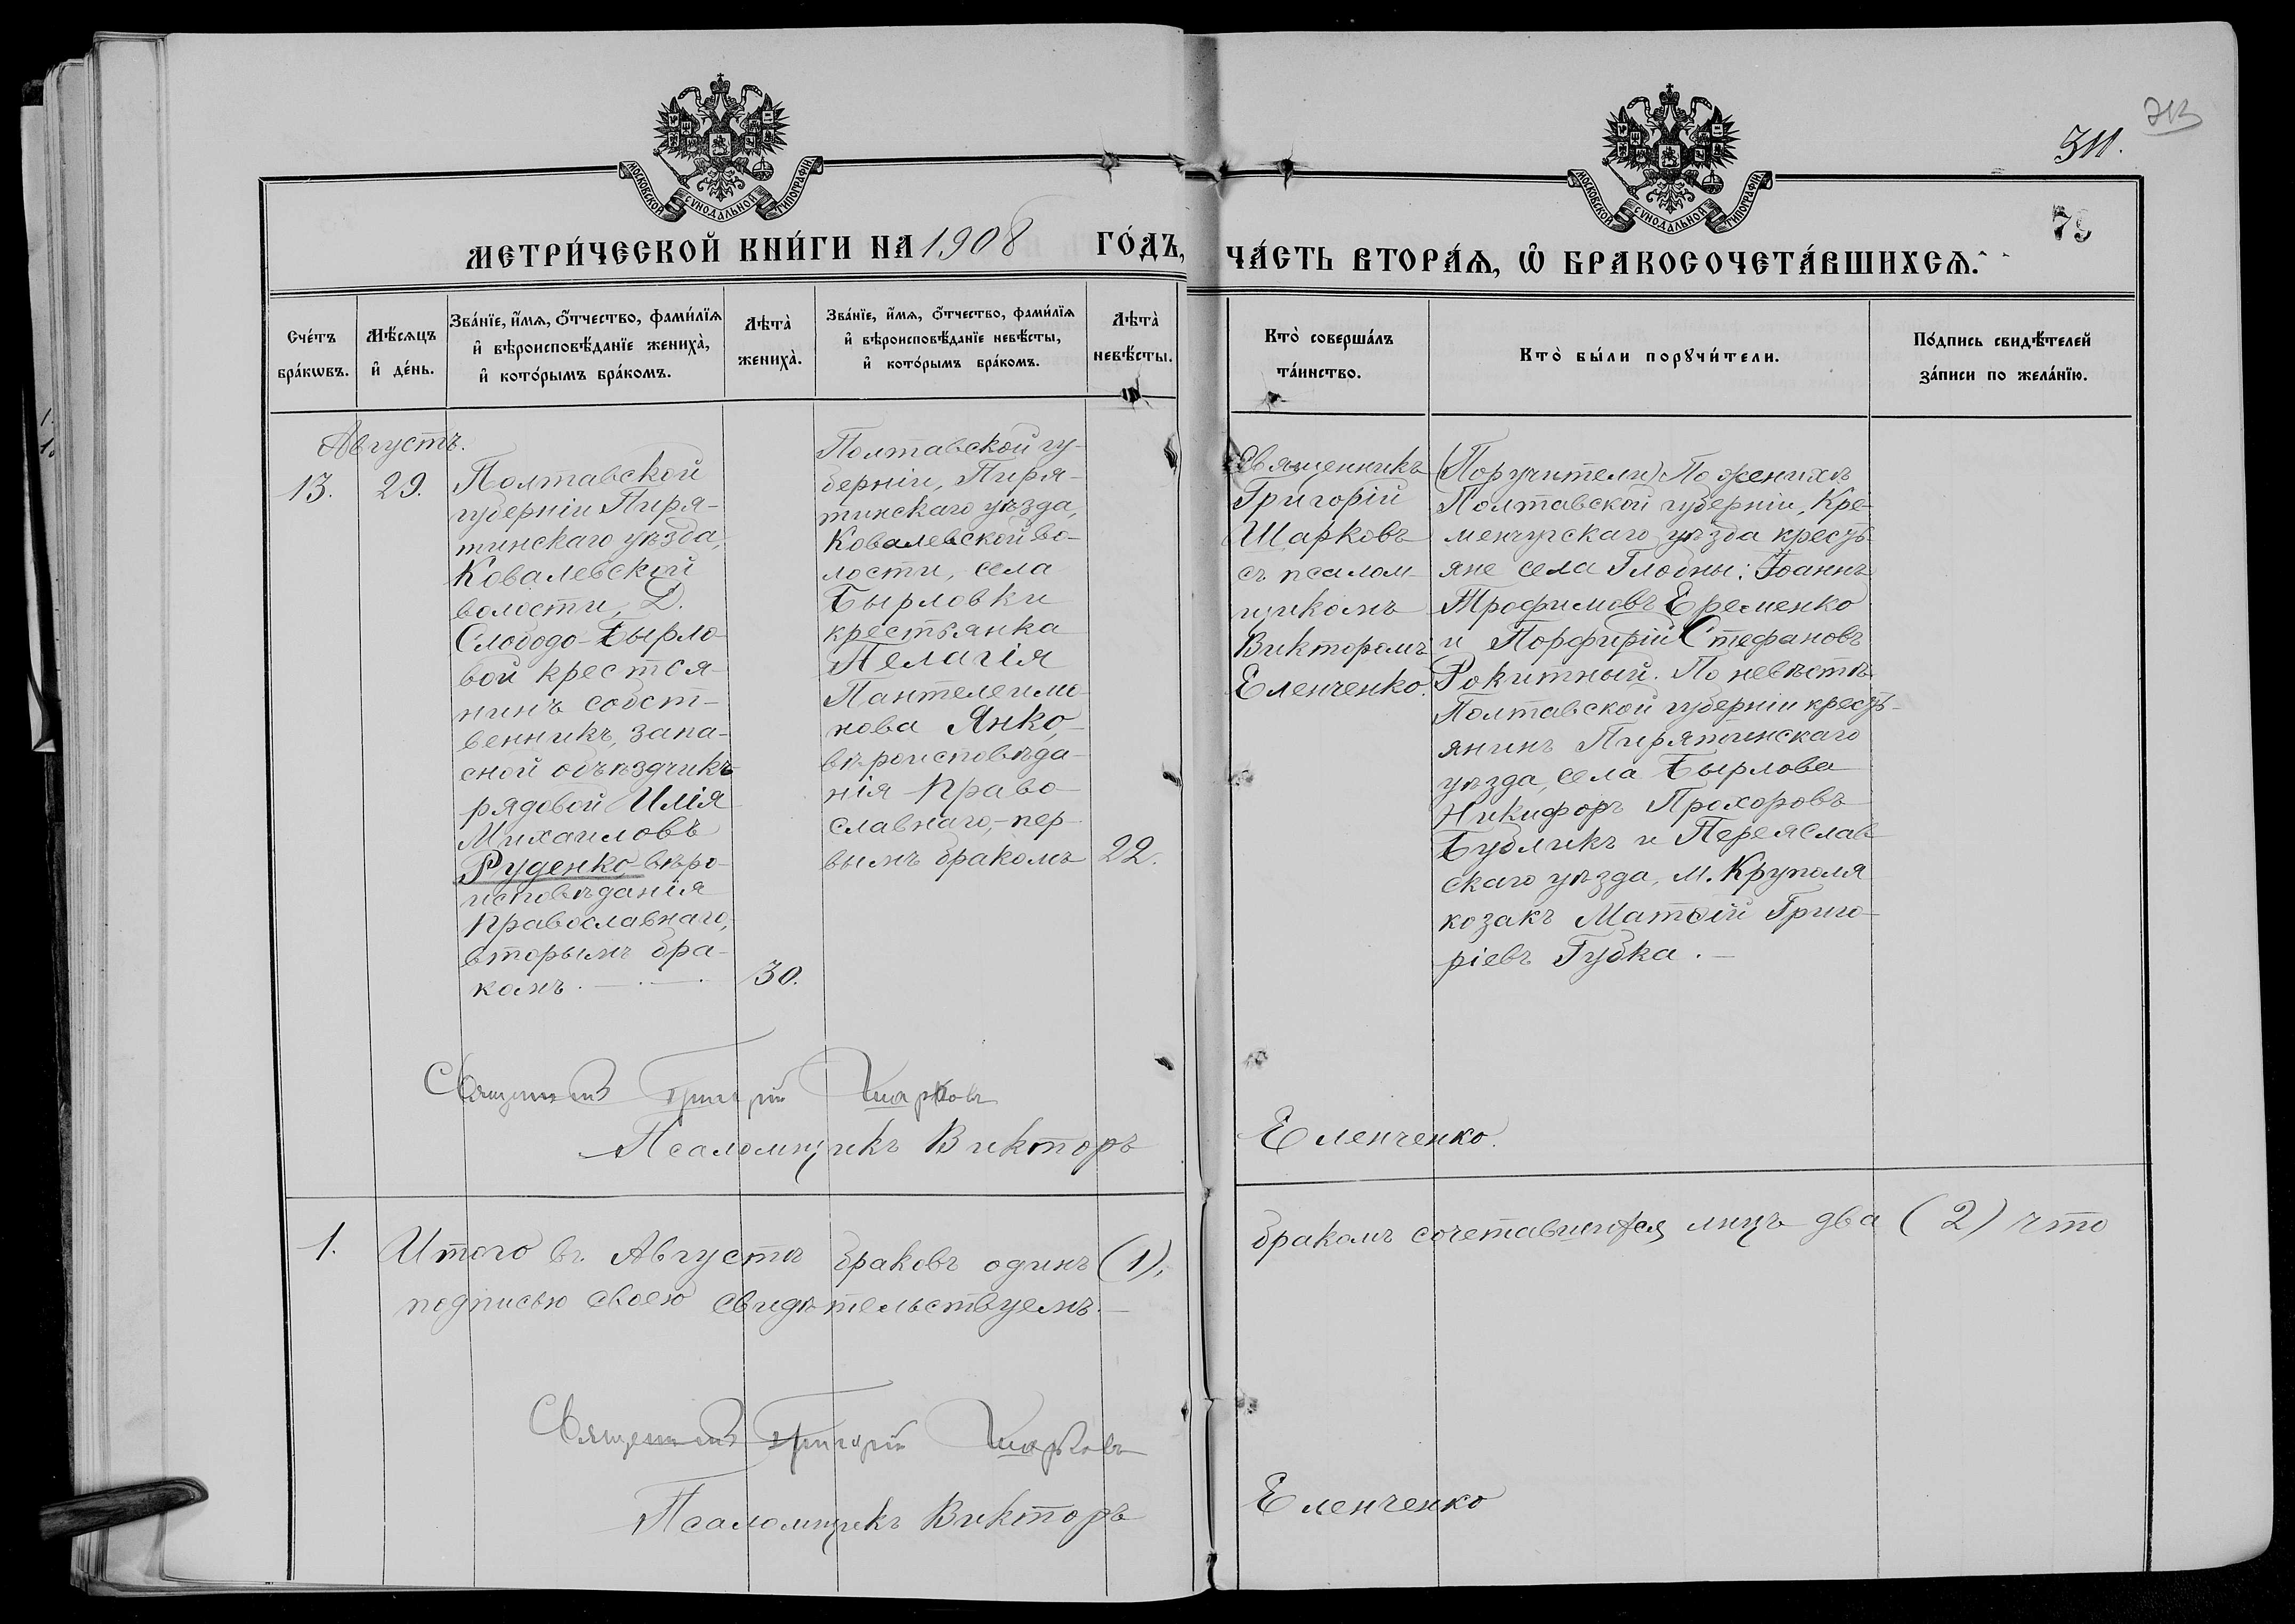 311.
79
МОСКОВСКОЙ СѴНОДАЛЬНОЙ ТИПОГРАФІИ
МОСКОВСКОЙ СѴНОДАЛЬНОЙ ТИПОГРАФІИ
МЕТРИ́ЧЕСКОЙ КНИ́ГИ НА 1908 ГО́ДЪ,
ЧА́СТЬ ВТОРА́Ѧ, Ѡ҆ БРАКОСОЧЕТА́ВШИХСѦ.
Сче́тъ
бра́кѡвъ.
Мѣ́сѧцъ
и҆ де́нь.
Зва́нїе, и҆́мѧ, ѻ҆́тчество, фами́лїѧ
и҆ вѣроисповѣ́данїе жениха̀,
и҆ кото́рымъ бра́комъ.
Лѣта̀
жениха̀.
Зва́нїе, и҆́мѧ, ѻ҆́тчество, фами́лїѧ
и҆ вѣроисповѣ́данїе невѣ́сты,
и҆ кото́рымъ бра́комъ.
Лѣта̀
невѣ́сты.
Кто̀ соверша́лъ
та́инство.
Кто̀ бы́ли порꙋчи́тели.
По́дпись свидѣ́телей
за́писи по жела́нїю.
Августъ.
13.
29.
Полтавской
губерніи Пиря-
тинскаго уѣзда,
Ковалевской
волости, Д.
Слободо-Бырло-
вой крестья-
нинъ собст-
венникъ, запа-
сной объѣздчикъ
рядовой Илія
Михаиловъ
Руденко вѣро-
исповѣданія
Православнаго,
вторымъ бра-
комъ.
30.
Полтавской гу-
берніи, Пиря-
тинскаго уѣзда,
Ковалевской во-
лости, села
Бырловки
крестьянка
Пелагія
Пантелеимо-
нова Янко,
вѣроисповѣда-
нія Право-
славнаго,-пер-
вымъ бракомъ
22.
Священникъ
Григорій
Шарковъ
съ псалом-
щикомъ
Викторомъ
Еленченко.
(Поручители) По женихѣ
Полтавской губерніи, Кре-
менчугскаго уѣзда кресть-
яне села Глобны: Іоаннъ
Трофимовъ Еременко
и Порфирій Стефановъ
Рокитный. По невѣстѣ
Полтавской губерніи кресть-
янинъ Пирятинскаго
уѣзда, села Бырлова
Никифоръ Прохоровъ
Бубликъ и Переяслав-
скаго уѣзда, м. Круполя
козакъ Матѳій Григо-
ріевъ Губка.
Священникъ Григорій Шарковъ
Псаломщикъ Викторъ Еленченко.
1. Итого въ Августѣ браковъ одинъ (1), бракомъ сочетавшихся лицъ два (2) что
подписью своею свидѣтельствуемъ.
Священникъ Григорій Шарковъ
Псаломщикъ Викторъ Еленченко